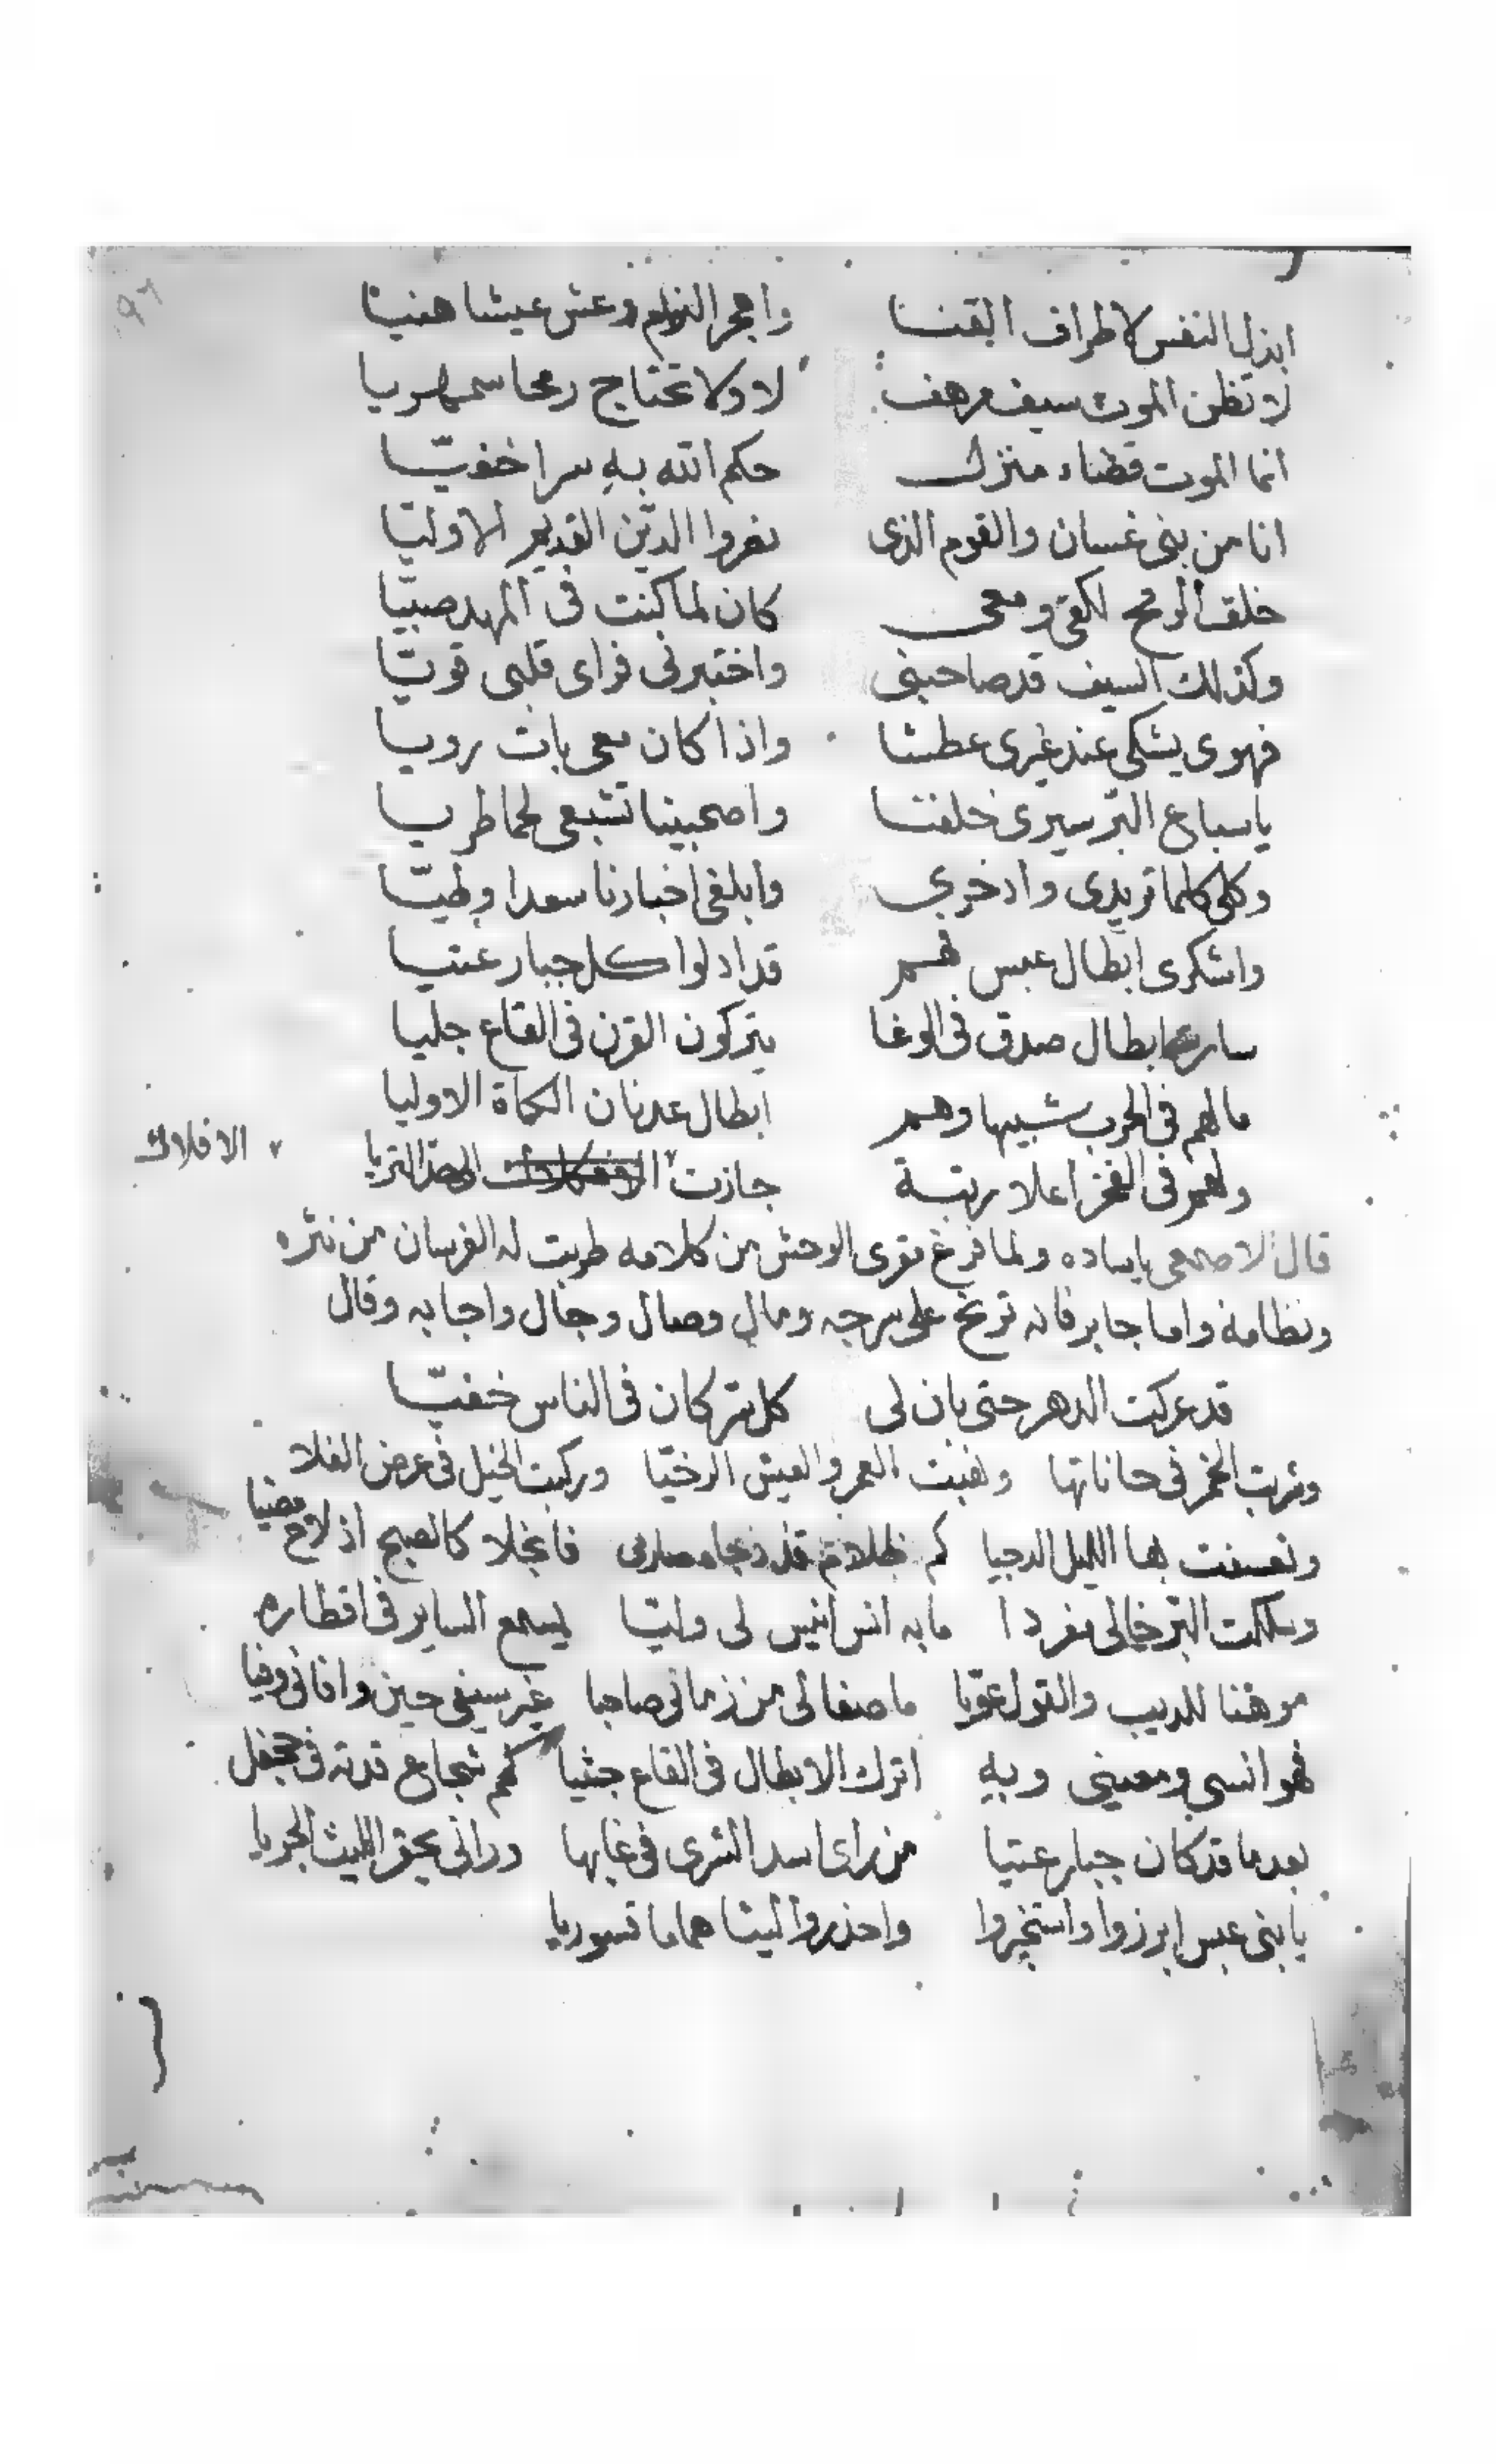 ٩٦
ابذل النفس لاطراف القنا واهجر النوم وعش عيشا هنيا
لا تظن الموت سيف مرهف لا ولا تحتاج رمحا سمهريا
انما الموت قضاء منزل حكم الله به سرا خفيّا
انا من بني غسان والقوم الذى نصروا الدّين القديم الاوليّا
خلق الرمح لكفى ومعى كان لما كنت فى المهد صبيّا
وكذلك السيف قد صاحبنى واختبرنى فراى قلبى قويّا
فهوى يشكى عند غيرى عطشا واذا كان معى بات رويا
ياسباع البرّ سيرى خلفنا واصحبينا تشبعى لحما طريا
وكلى كلما تريدى وادخرى وابلغى اخبارنا سعدا وطيّا
واشكرى ابطال عبس فهم قد اذلوا كل جبار عتيا
ابطال صدق فى الوغا يتركون القرن فى القاع جليا
مالهم فى الحرب شبيها وهم ابطال عدنان الكماة الاوليا
ولهم فى الفخر اعلا رتبة جازت الثريا
الافلاك
قال الاصمعى ياساده ولما فرغ مقرى الوحش من كلامه طربت له الفرسان من نثره
ونظامه واما جابر فانه ترنح على سرجه ومال وصال وجال واجابه وقال
قد عركت الدهر حتى بان لى كل سرّ كان فى الناس خفيّا
وشربت الخمر فى حاناتها العمر والعيش الرخيّا وركبت الخيل فى عرض الفلا
وتعسفت بها الليل الدجيا كم ظلام قد فانجلا كالصبح اذ لاح مضيا
وسلكت البرّ خالى مفردا ما به انس انيس لى وليّا يسمع الساير فى اقطاره
للديب والقول عويّا ما صفا لى من زمانى صاحبا غير سيفى حين وافانى وفيا
فهو انسى ومعينى وبه اترك الابطال فى القاع جثيا كم شجاع قدته فى جحفل
بعد ما قد كان جبار عتيا من راى اسد الشرى فى غابها ورانى يحقر الليث الجريا
يابنى عبس ابرزوا واستخبروا واحذروا ليثا هماما قسوريا